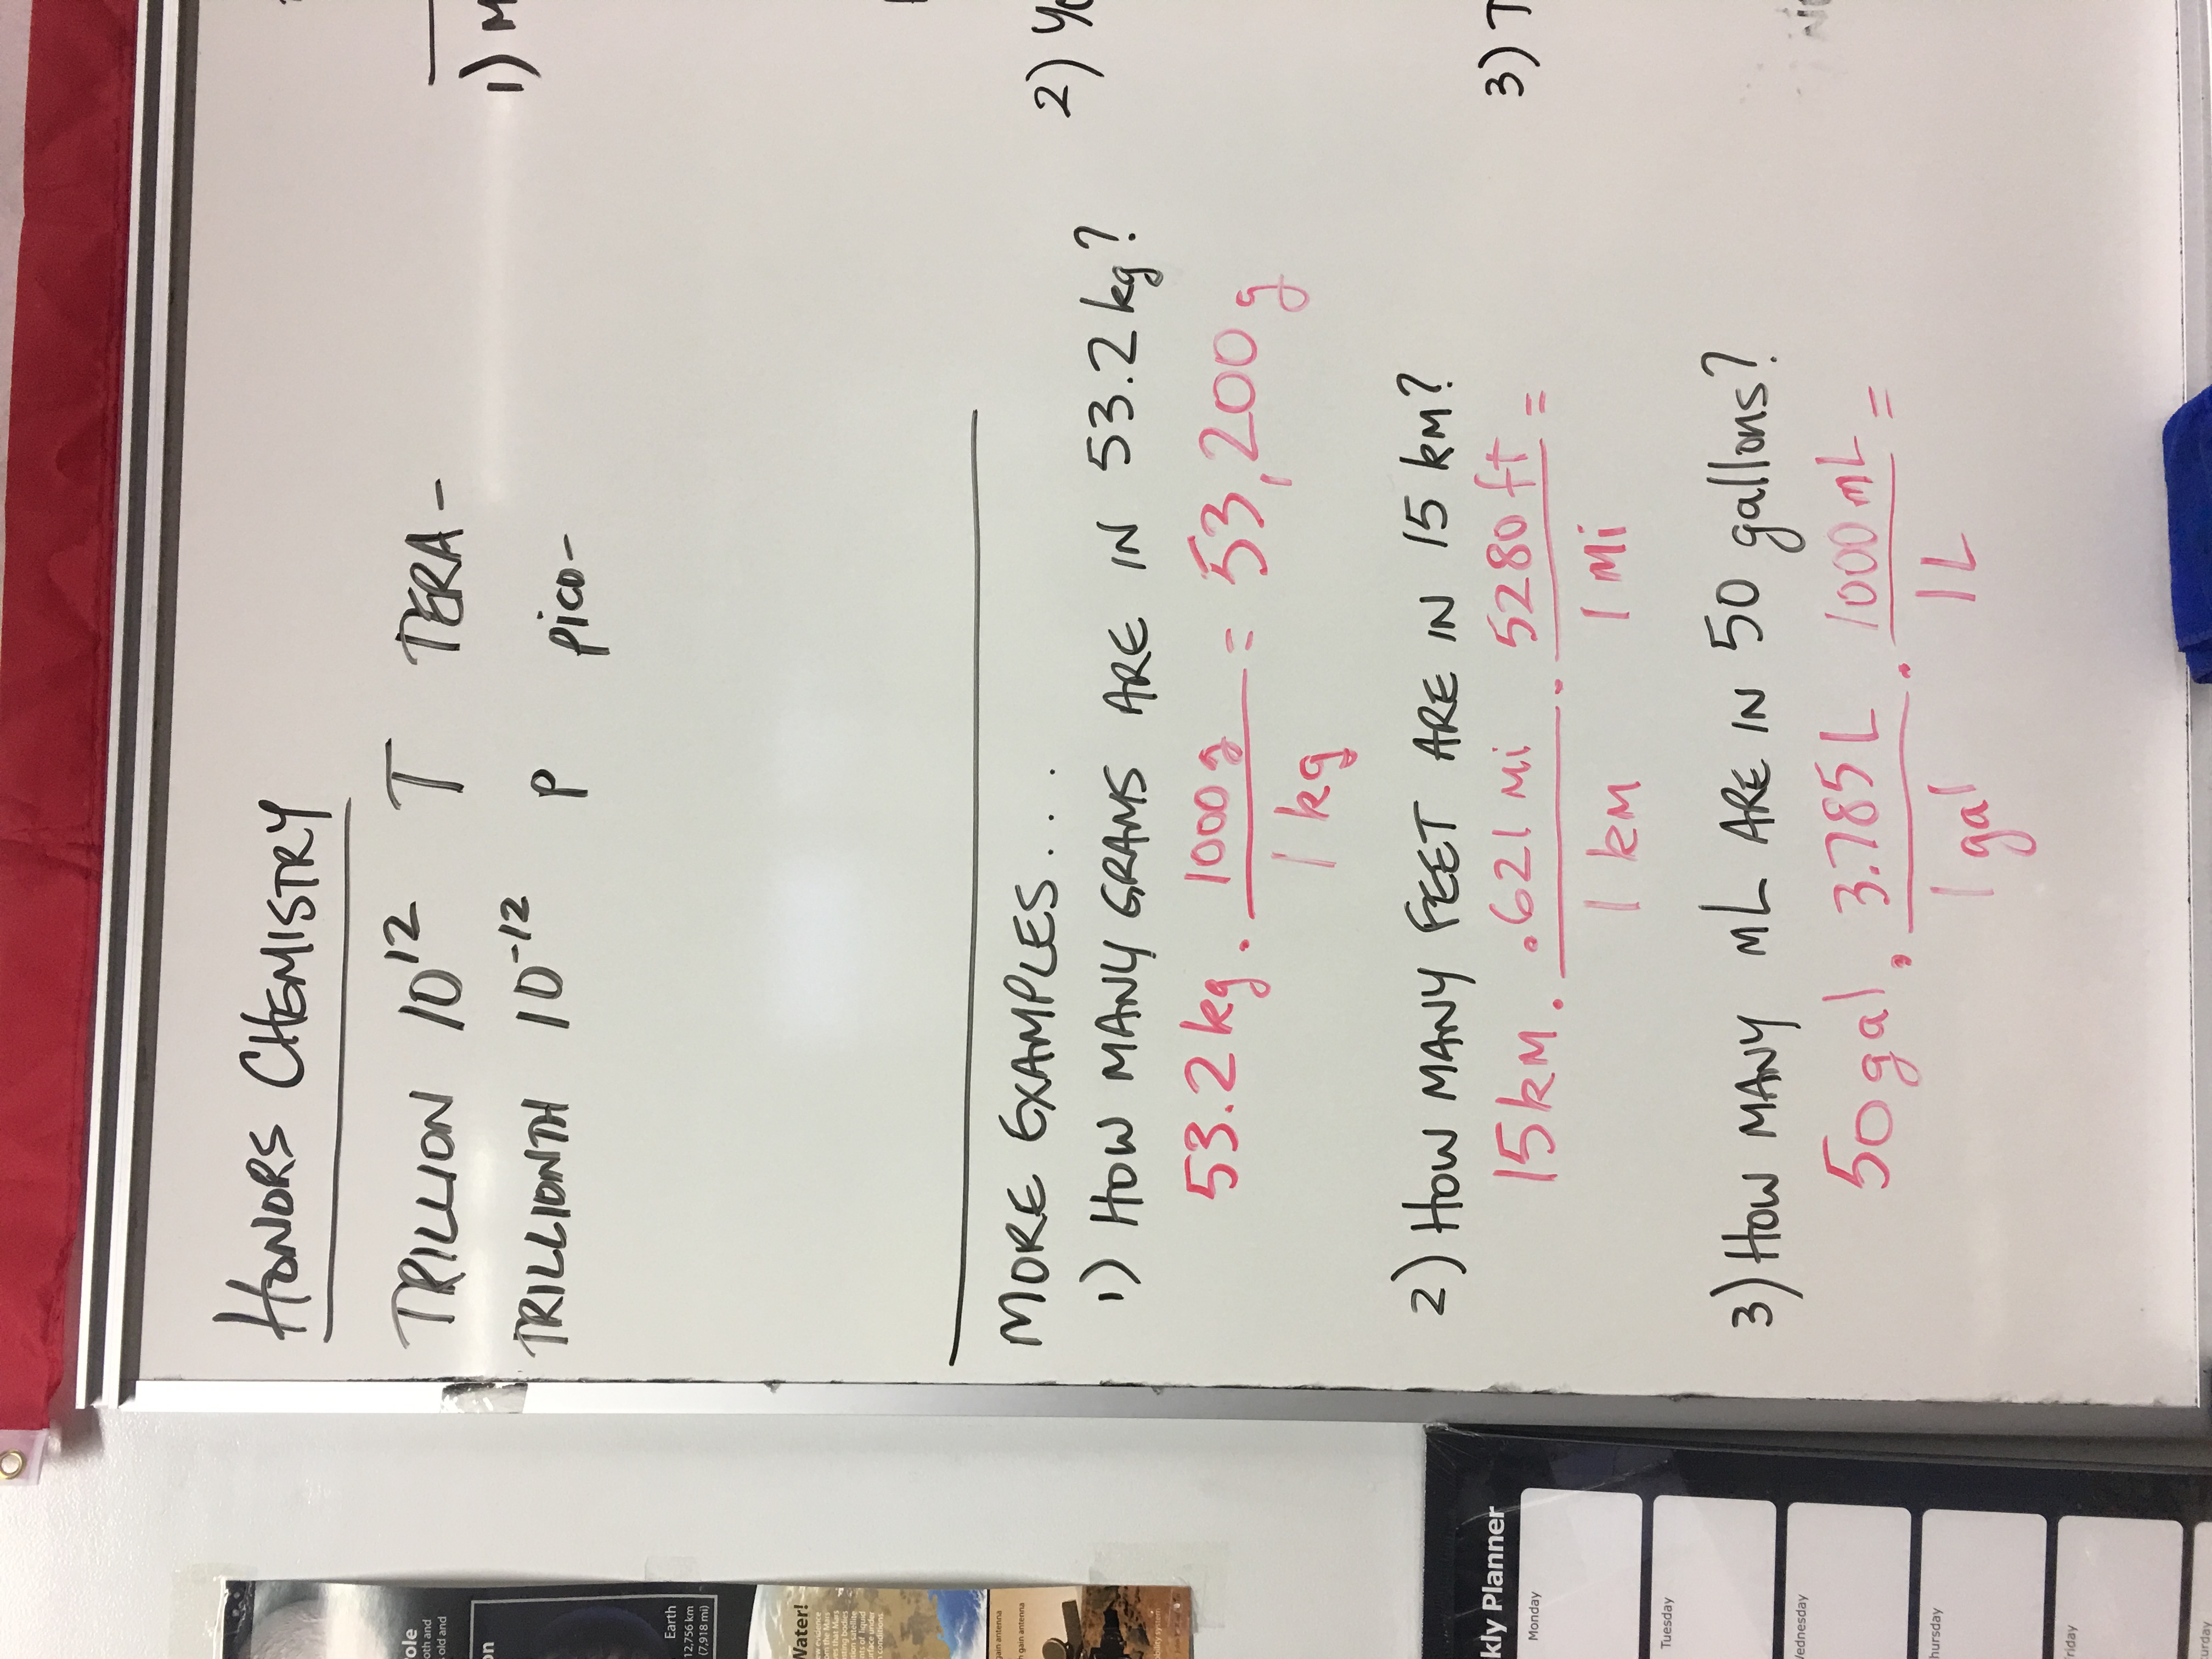 HONORS CHEMISTRY
TRILLION 10¹² T TERA-
TRILLIONTH 10⁻¹² p pico-
MORE EXAMPLES....
1) HOW MANY GRAMS ARE IN 53.2 kg?
53.2 kg · 1000 g / 1 kg = 53,200 g
2) HOW MANY FEET ARE IN 15 km?
15 km · .621 mi / 1 km · 5280 ft / 1 mi =
3) HOW MANY mL ARE IN 50 gallons?
50 gal · 3.785 L / 1 gal · 1000 mL / 1 L =
1) M
2) Yo
3) T
ole
oth and
old and
on
Earth
12,756 km
(7,918 mi)
Water!
gain antenna
gain antenna
kly Planner
Monday
Tuesday
Wednesday
hursday
riday
urday